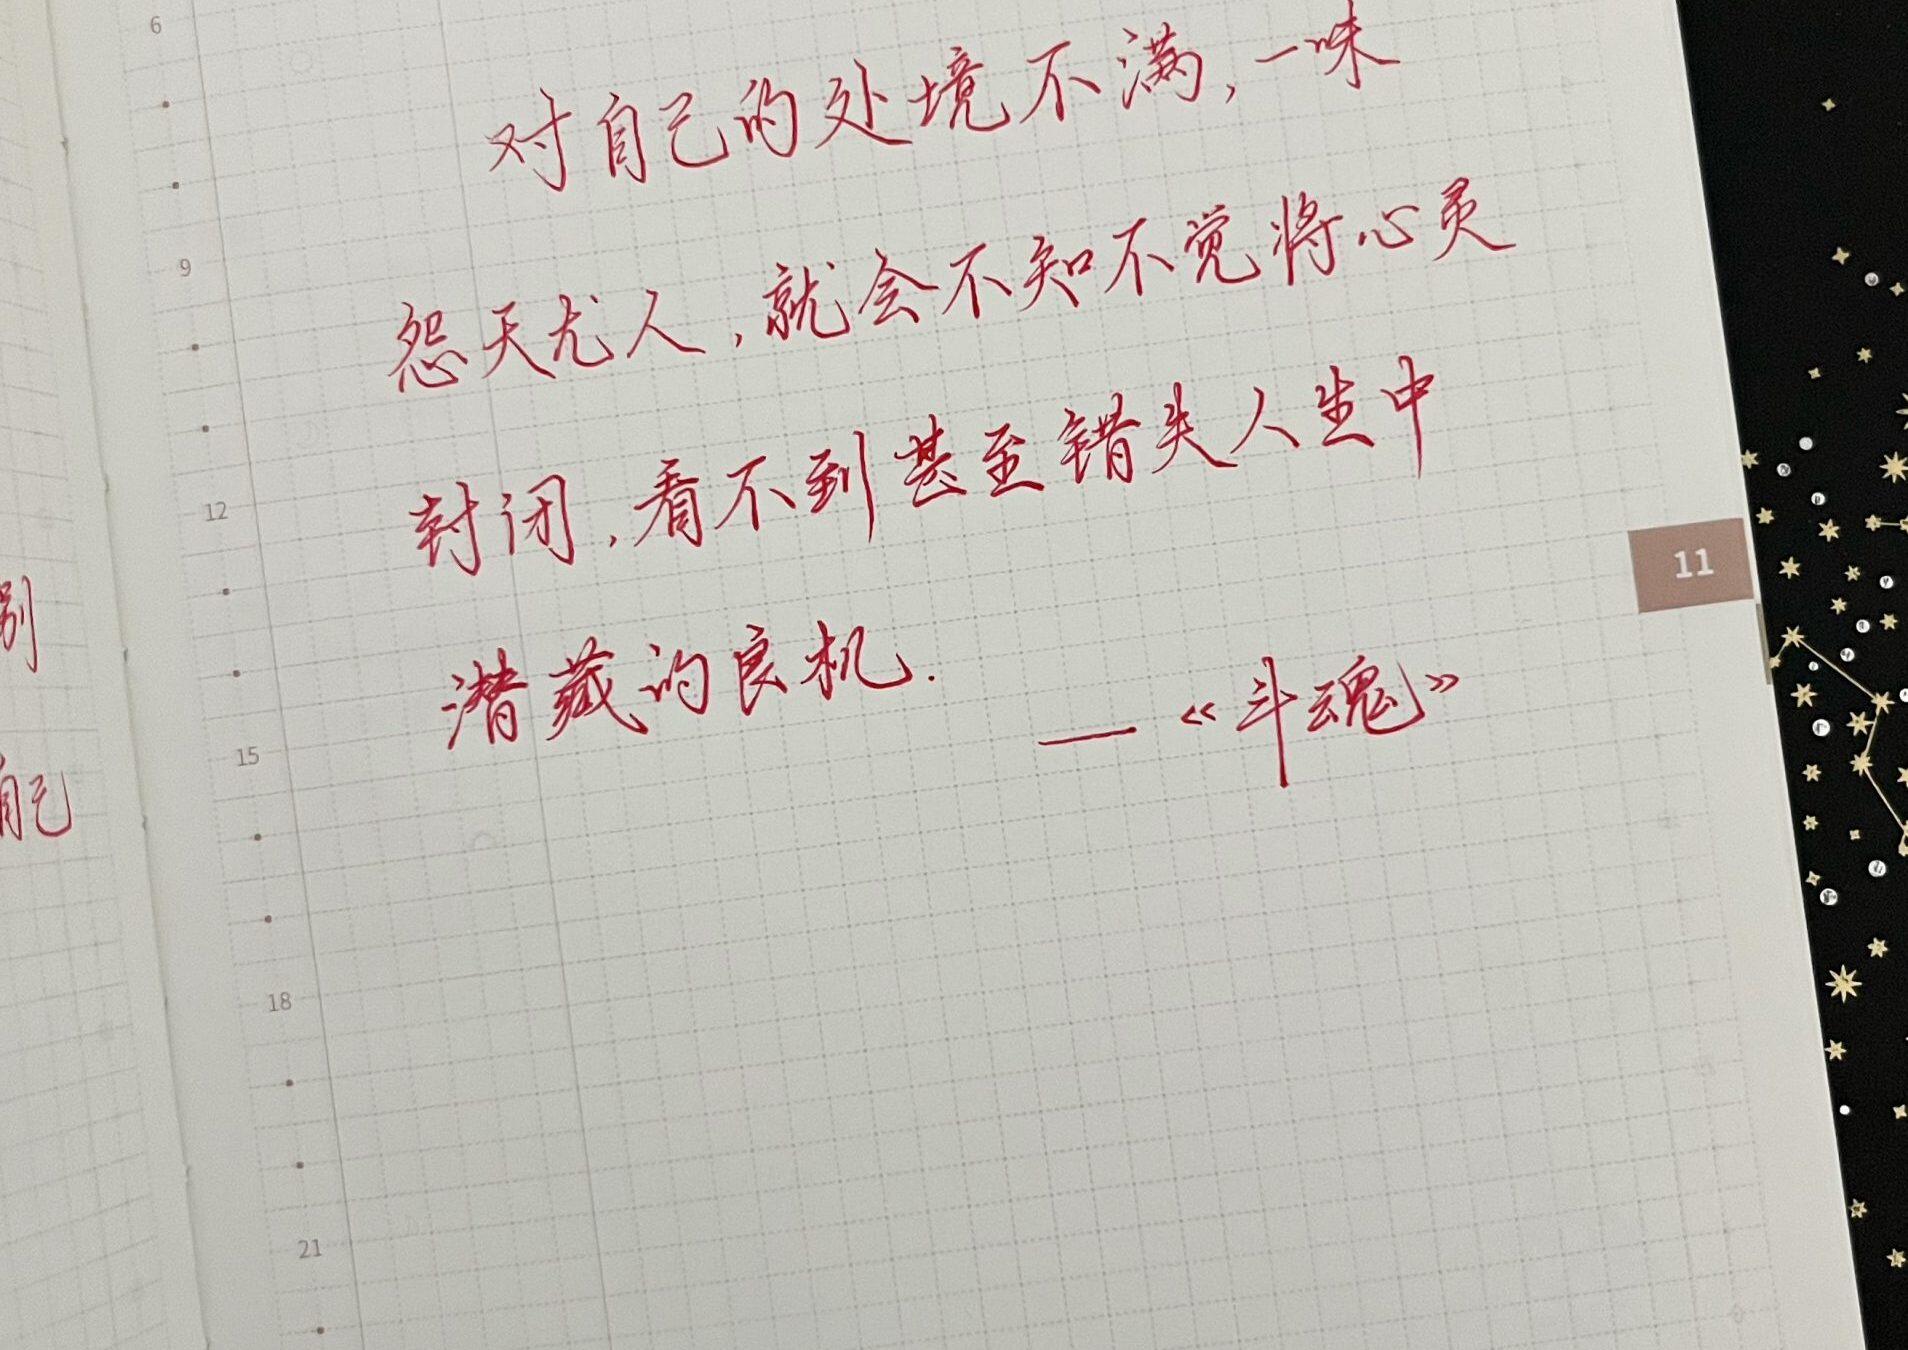 6
对自己的处境不满,一味
9
怨天尤人,就会不知不觉将心灵
12
封闭,看不到甚至错失人生中
11
别
潜藏的良机.
——《斗魂》
15
自己
18
21